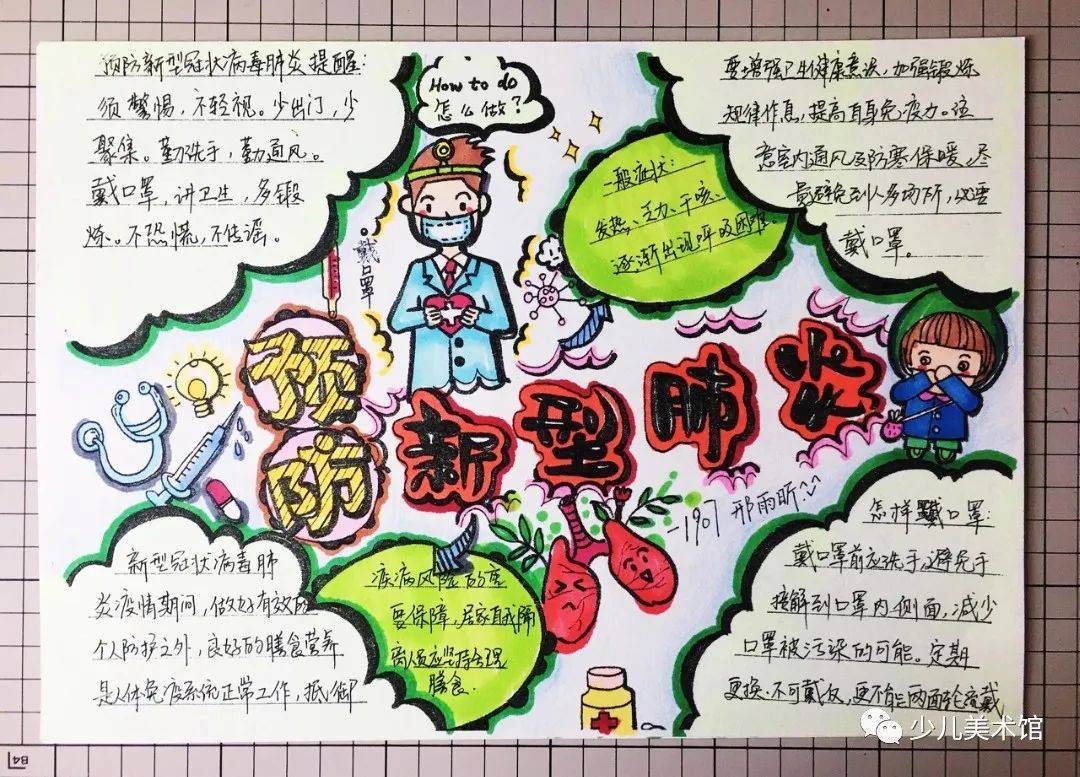 预防新型冠状病毒肺炎提醒:
须警惕，不轻视。少出门，少
聚集。勤洗手，勤通风。
戴口罩，讲卫生，多锻
炼。不恐慌，不传谣。
How to do
怎么做?
戴口罩
一般症状:
发热、乏力、干咳、
逐渐出现呼吸困难。
要增强卫生健康意识，加强锻炼
规律作息，提高自身免疫力。注
意室内通风及防寒保暖。尽
量避免到人多场所，必要
戴口罩。
预防
新型肺炎
1907 邢雨昕
新型冠状病毒肺
炎疫情期间，做好有效的
个人防护之外，良好的膳食营养
是人体免疫系统正常工作，抵御
疾病风险的重
要保障，居家自我隔
离人员应坚持合理
膳食.
怎样戴口罩:
戴口罩前应洗手，避免手
接解到口罩内侧面，减少
口罩被污染的可能。定期
更换、不可戴反，更不能两面轮流戴
少儿美术馆
B4